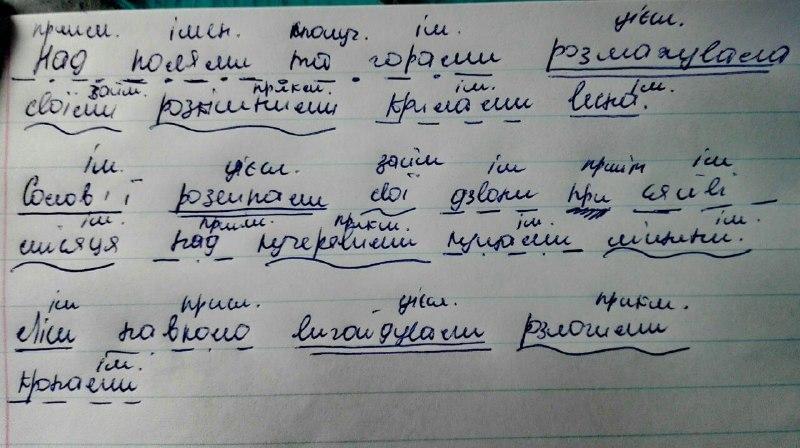 прийм. імен. сполуч. ім. дієсл.
Над полями та горами розмахувала
займ. прикм. ім. ім.
своїми розкішними крилами весна.
ім. дієсл. займ ім прийм ім
Солов'ї розсипали свої дзвони при сяйві
ім. прийм. прикм. ім. ім.
місяця над кучерявими кущами ліщини.
ім присл. дієсл. прикм.
Ліси навколо вигойдували розлогими
ім.
кронами